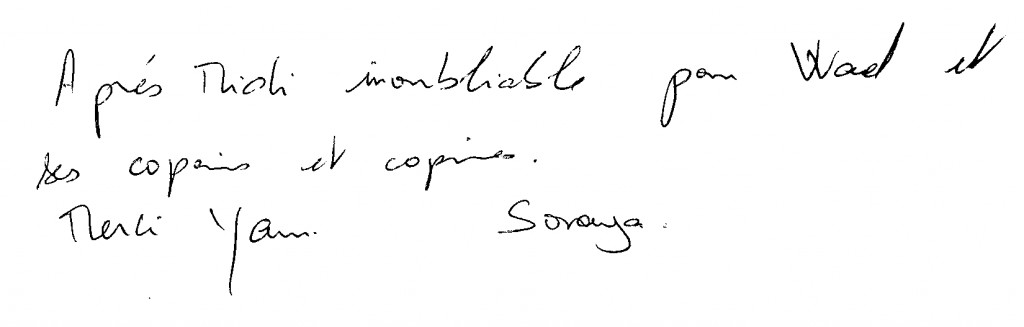 Après Midi inoubliable pour Wael et
ses copains et copines.
Merci Yann. Soraya.